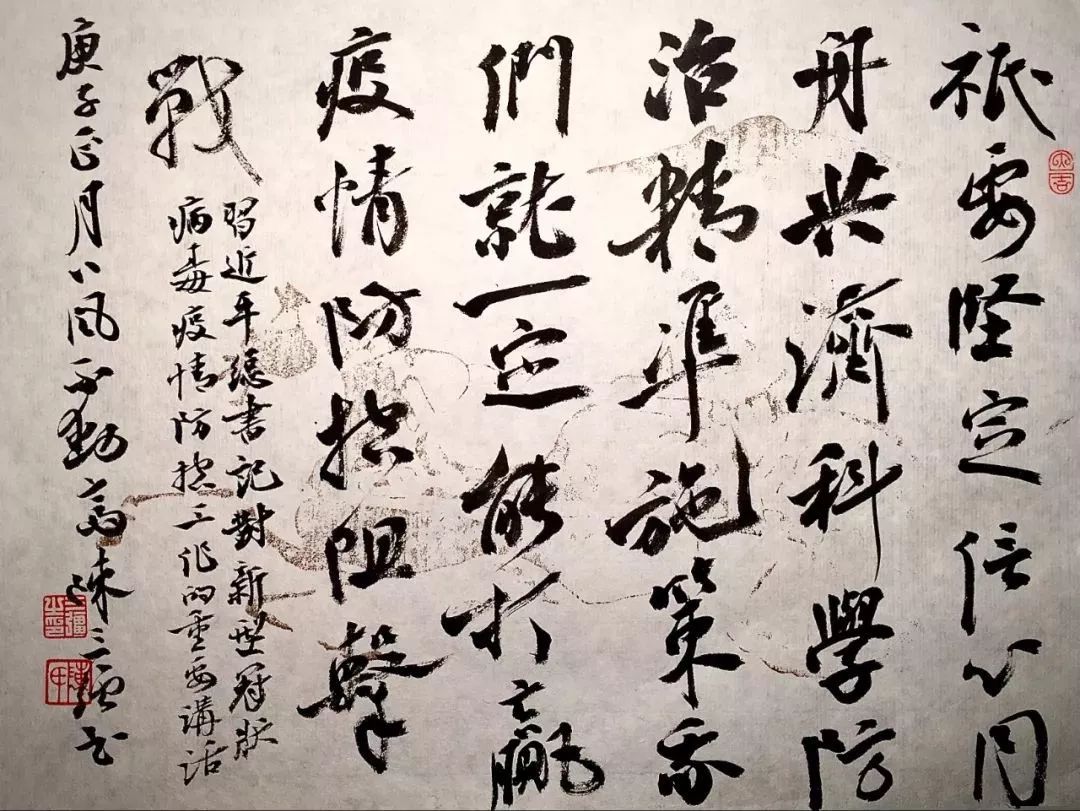 祇要坚定信心同
舟共濟科學防
治精準施策我
們就一定能打贏
疫情防控阻擊
戰
習近平總書記對新型冠狀
病毒疫情防控工作的重要講話
庚子正月八風不動齋陳三强書